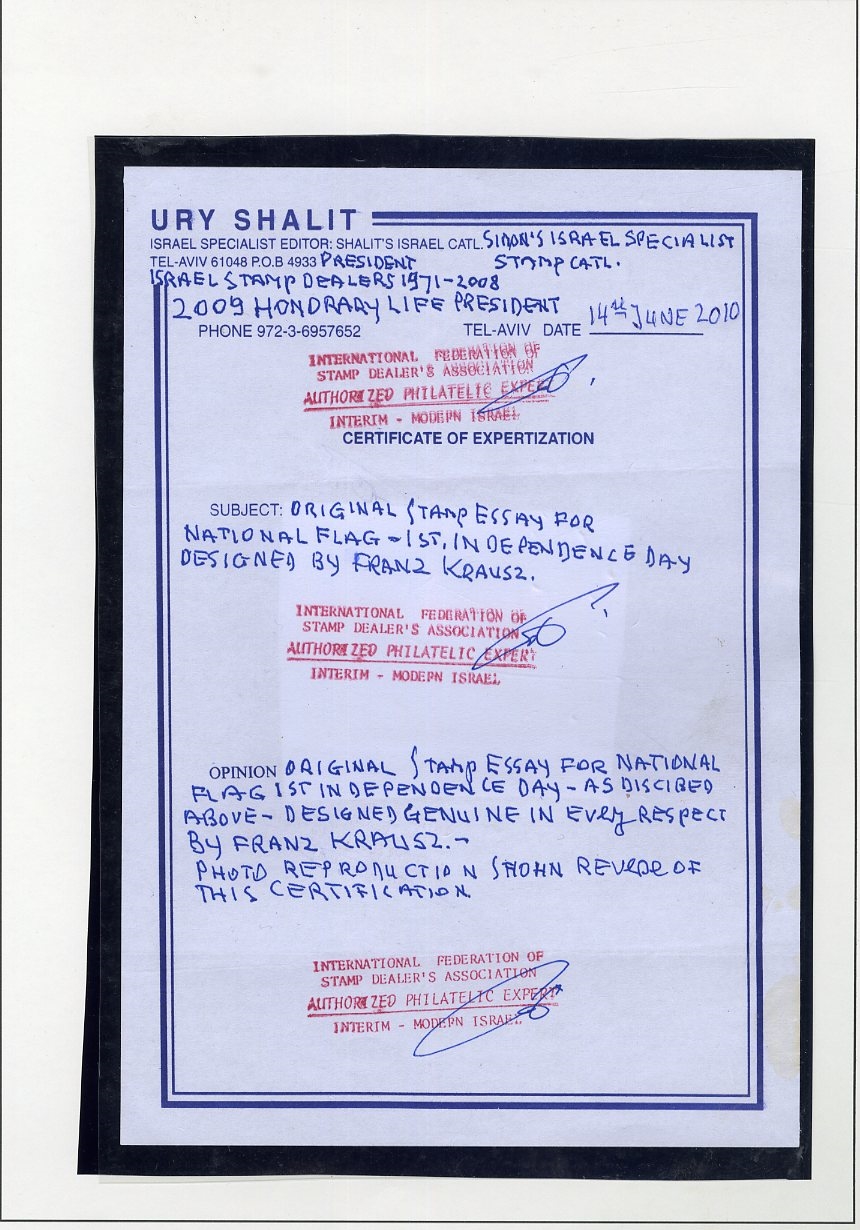 URY SHALIT
ISRAEL SPECIALIST EDITOR: SHALIT'S ISRAEL CATL. SIMON'S ISRAEL SPECIALIST
TEL-AVIV 61048 P.O.B 4933 PRESIDENT STAMP CATL.
ISRAEL STAMP DEALERS 1971-2008
2009 HONORARY LIFE PRESIDENT
PHONE 972-3-6957652 TEL-AVIV DATE 14th JUNE 2010
INTERNATIONAL FEDERATION OF
STAMP DEALER'S ASSOCIATION
AUTHORIZED PHILATELIC EXPERT
INTERIM - MODERN ISRAEL
CERTIFICATE OF EXPERTIZATION
SUBJECT: ORIGINAL STAMP ESSAY FOR
NATIONAL FLAG - 1ST, INDEPENDENCE DAY
DESIGNED BY FRANZ KRAUSZ.
INTERNATIONAL FEDERATION OF
STAMP DEALER'S ASSOCIATION
AUTHORIZED PHILATELIC EXPERT
INTERIM - MODERN ISRAEL
OPINION ORIGINAL STAMP ESSAY FOR NATIONAL
FLAG 1ST INDEPENDENCE DAY - AS DISCIBED
ABOVE - DESIGNED GENUINE IN EVERY RESPECT
BY FRANZ KRAUSZ.-
PHOTO REPRODUCTION SHOHN REVERE OF
THIS CERTIFICATION
INTERNATIONAL FEDERATION OF
STAMP DEALER'S ASSOCIATION
AUTHORIZED PHILATELIC EXPERT
INTERIM - MODERN ISRAEL